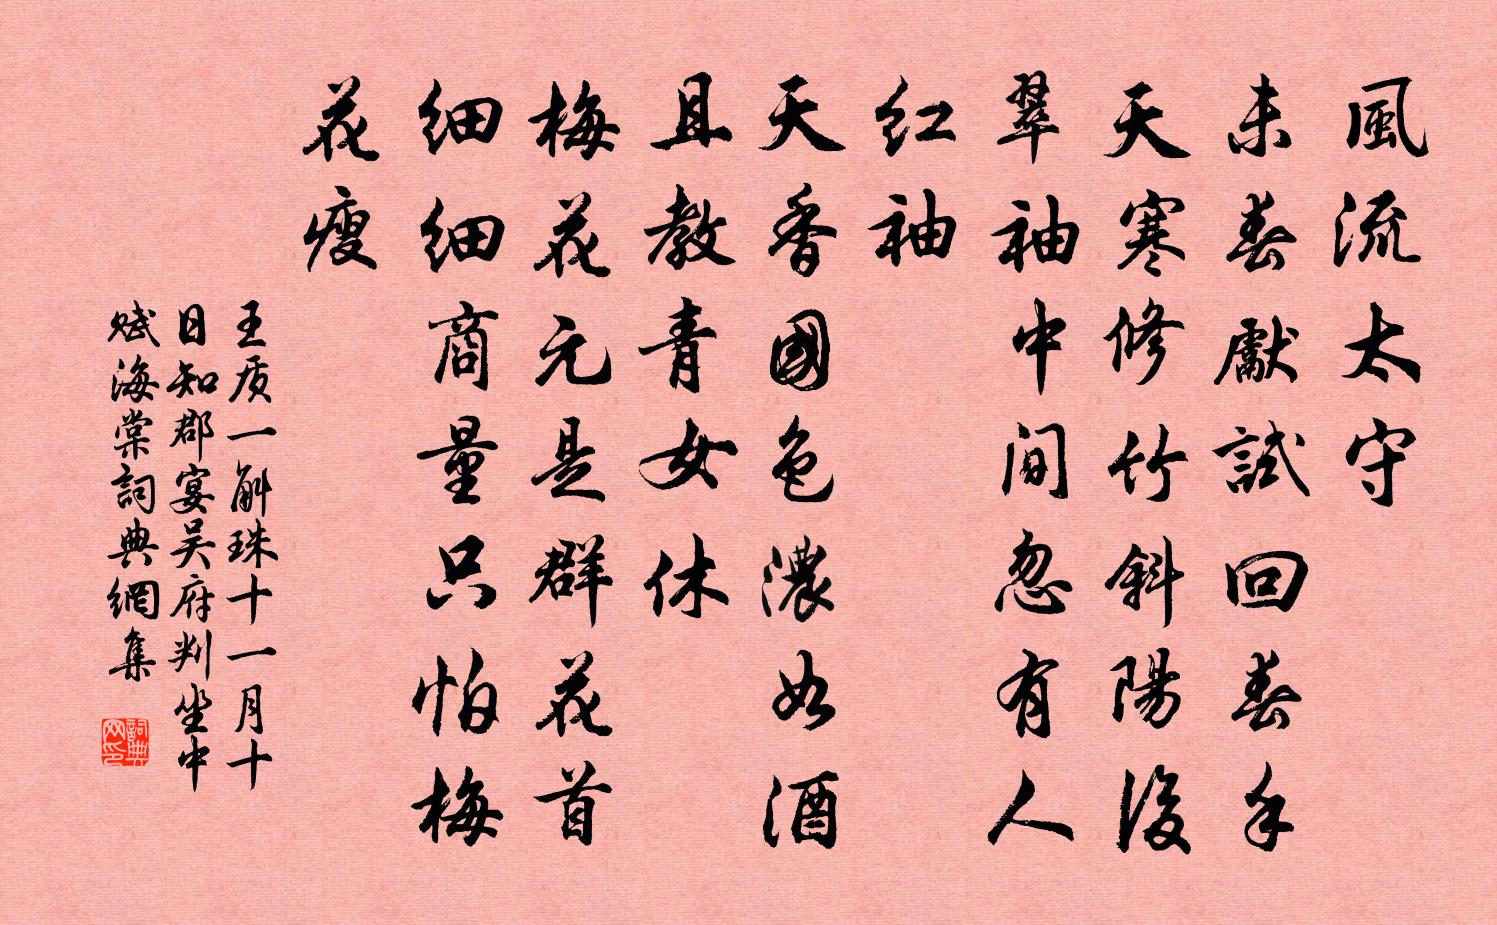 風流太守
未春獻試回春手
天寒修竹斜陽後
翠袖中间忽有人
红袖
天香國色濃如酒
且教青女休
梅花元是群花首
细细商量只怕梅
花瘦
王质一斛珠十一月十
日知郡宴吴府判坐中
赋海棠詞典網集
詞典
网印